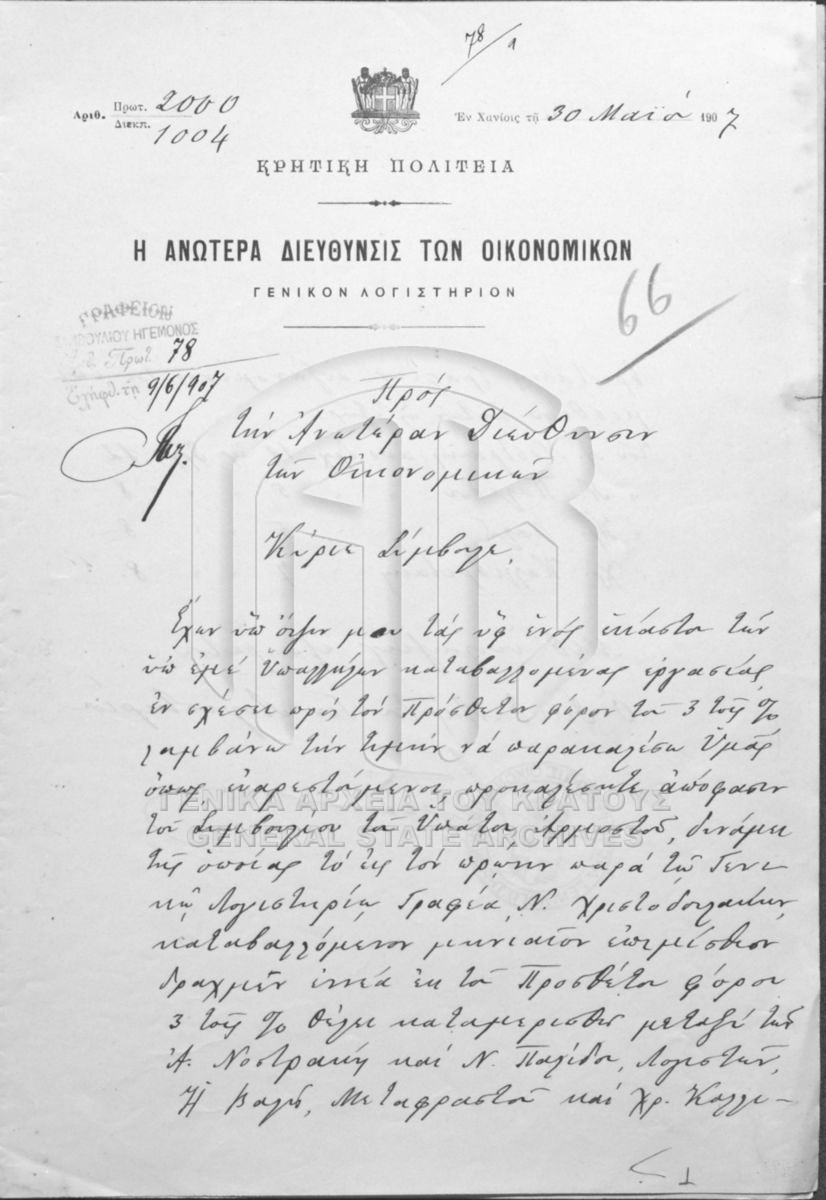 78/1
Αριθ. Πρωτ. 2000
Διεκπ. 1004
Ἐν Χανίοις τῇ 30 Μαΐου 1907
ΚΡΗΤΙΚΗ ΠΟΛΙΤΕΙΑ
Η ΑΝΩΤΕΡΑ ΔΙΕΥΘΥΝΣΙΣ ΤΩΝ ΟΙΚΟΝΟΜΙΚΩΝ
ΓΕΝΙΚΟΝ ΛΟΓΙΣΤΗΡΙΟΝ
66
ΓΡΑΦΕΙΟΝ
ΣΥΜΒΟΥΛΙΟΥ ΗΓΕΜΟΝΟΣ
Πρωτ. 78
Ἐλήφθη τῇ 9/6/907
Πρός
τὴν Ἀνωτέραν Διεύθυνσιν
τῶν Οἰκονομικῶν
Κύριε Σύμβουλε,
Ἔχων ὑπ' ὄψιν μου τὰς ὑφ' ἑνὸς ἑκάστου τῶν
ὑπ' ἐμὲ Ὑπαλλήλων καταβαλλομένας ἐργασίας
ἐν σχέσει πρὸς τὸν Πρόσθετον φόρον τοῦ 3 τοῖς %
λαμβάνω τὴν τιμὴν νὰ παρακαλέσω Ὑμᾶς
ὅπως, εὐαρεστούμενος, προκαλέσητε ἀπόφασιν
τοῦ Συμβουλίου τοῦ Ὑπάτου Ἁρμοστοῦ, δυνάμει
τῆς ὁποίας τὸ εἰς τὸν πρώην παρὰ τῷ Γενι-
κῷ Λογιστηρίῳ Γραφέα Ν. Χριστοδουλάκην,
καταβαλλόμενον μηνιαῖον ἐπιμίσθιον
δραχμῶν ἐννέα ἐκ τοῦ Προσθέτου φόρου
3 τοῖς % θέλει καταμερισθῆ μεταξὺ τῶν
Α. Νοστράκη καὶ Ν. Παλίδου, Λογιστῶν,
Η Βαλῆ, Μεταφραστοῦ καὶ Χρ. Καλλι-
ΓΕΝΙΚΑ ΑΡΧΕΙΑ ΤΟΥ ΚΡΑΤΟΥΣ
GENERAL STATE ARCHIVES